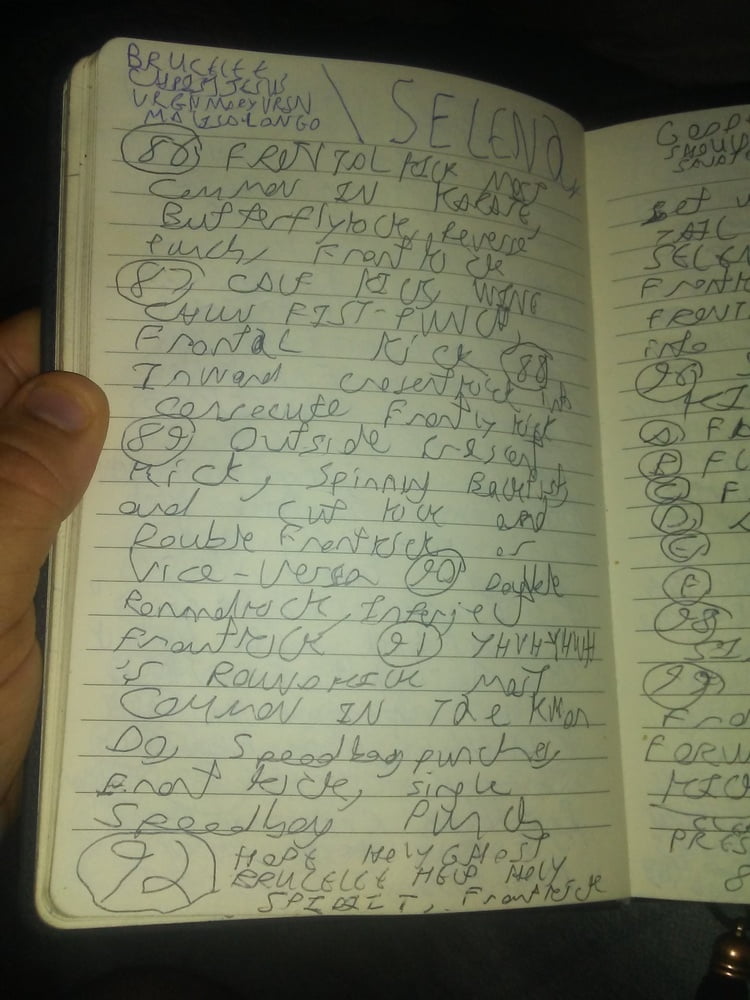 BRUCELEE
CHRISTJESUS
VRGNMARYVRSN
\ SELENA
86 FRONTAL KICK MOST
COMMON IN KARATE,
Butterflykick, Reverse
Punch, Frontkick
87 CALF KICK, WING
CHUN FIST-PUNCH,
Frontal Kick 88
Inward cresentkick into
consecute Frontly kick
89 Outside cresent
Kick, Spinning Backfist
and cut kick and
Double Frontkick or
Vice-Versa 90 Double
Roundkick, Inferieu
Frontkick 91 YHVH-YHVH
's ROUNDKICK MOST
COMMON IN Tae Kwon
Do, Speedbag punches
Front kick, single
Speedbag Punch
92 HOPE HOLY GHOST
BRUCELEE HELP HOLY
SPIRIIT, Frontkick
GOOD
SHOU
Set
SELEN
FrontK
FRONT
into
96
KI
A FR
B FU
C F
D
E
F
98
SI
99
Fro
FORW
KICK
PRES
8